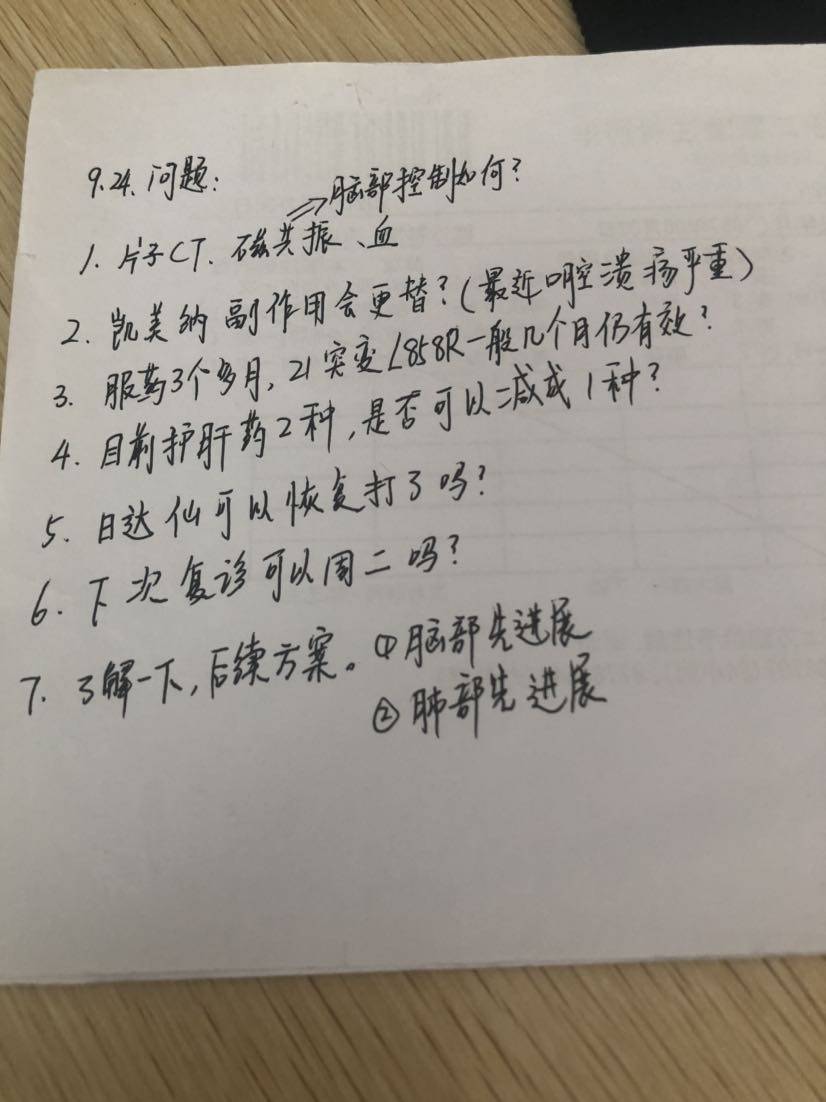 9.24.问题:
⇒脑部控制如何?
1. 片子CT、磁共振、血
2. 凯美纳副作用会更替?(最近口腔溃疡严重)
3. 服药3个多月,21突变L858R一般几个月仍有效?
4. 目前护肝药2种,是否可以减成1种?
5. 日达仙可以恢复打了吗?
6. 下次复诊可以周二吗?
7. 了解一下,后续方案。①脑部先进展
②肺部先进展